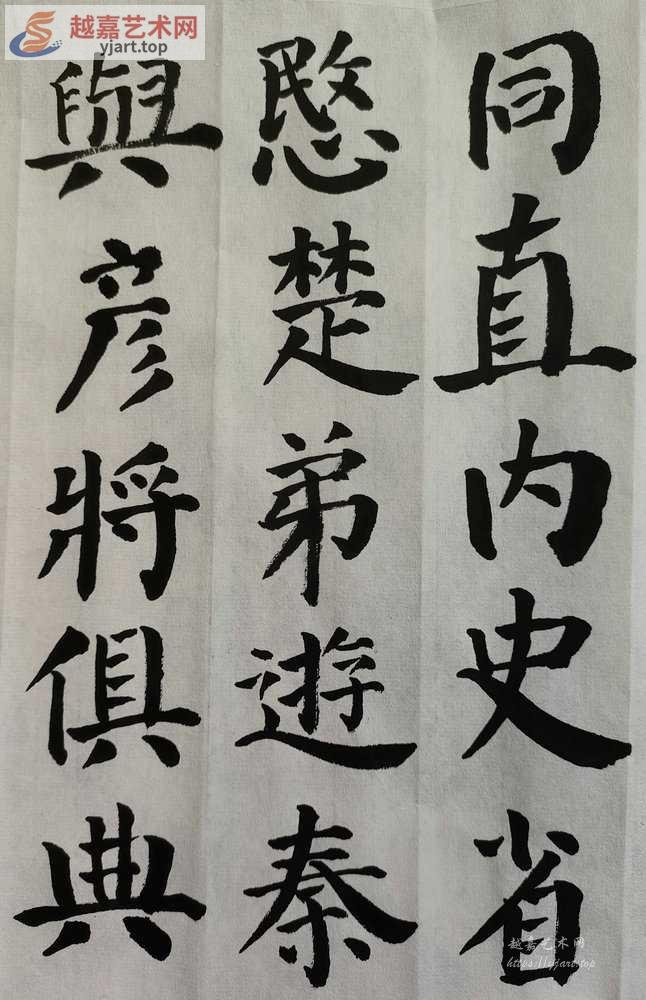 同直内史省
愍楚弟遊秦
與彦將俱典
越嘉艺术网
yjart.top
越嘉艺术网
https://yjart.top